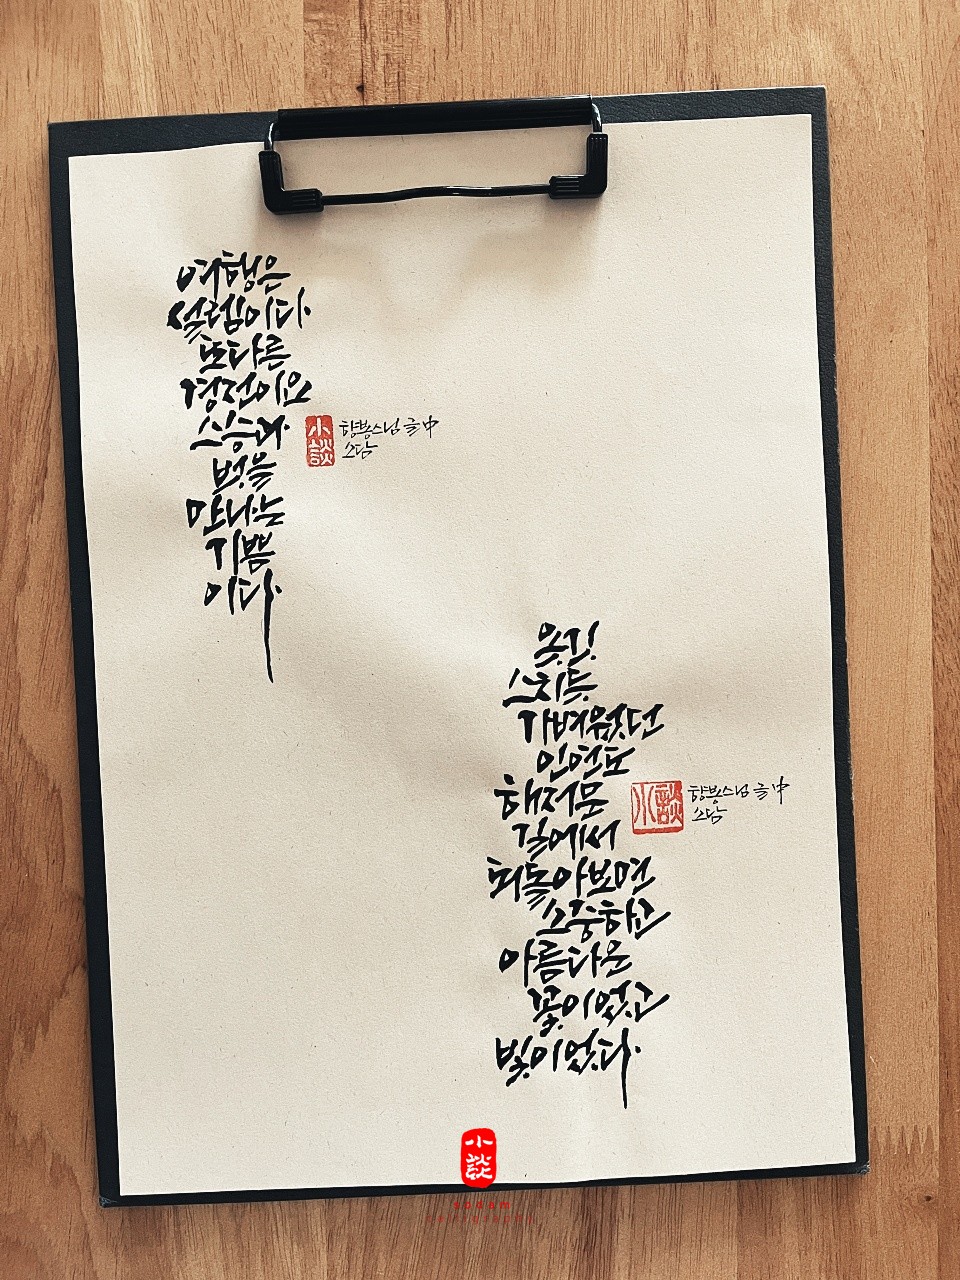 여행은
설렘이다
또다른
경전이요
스승과
법을
만나는
기쁨
이다
小談
향봉스님 글 中
소담
옷깃
스치듯
가벼웠던
인연도
해저문
길에서
뒤돌아보면
소중하고
아름다운
꽃이었고
빛이었다
小談
향봉스님 글 中
소담
小談